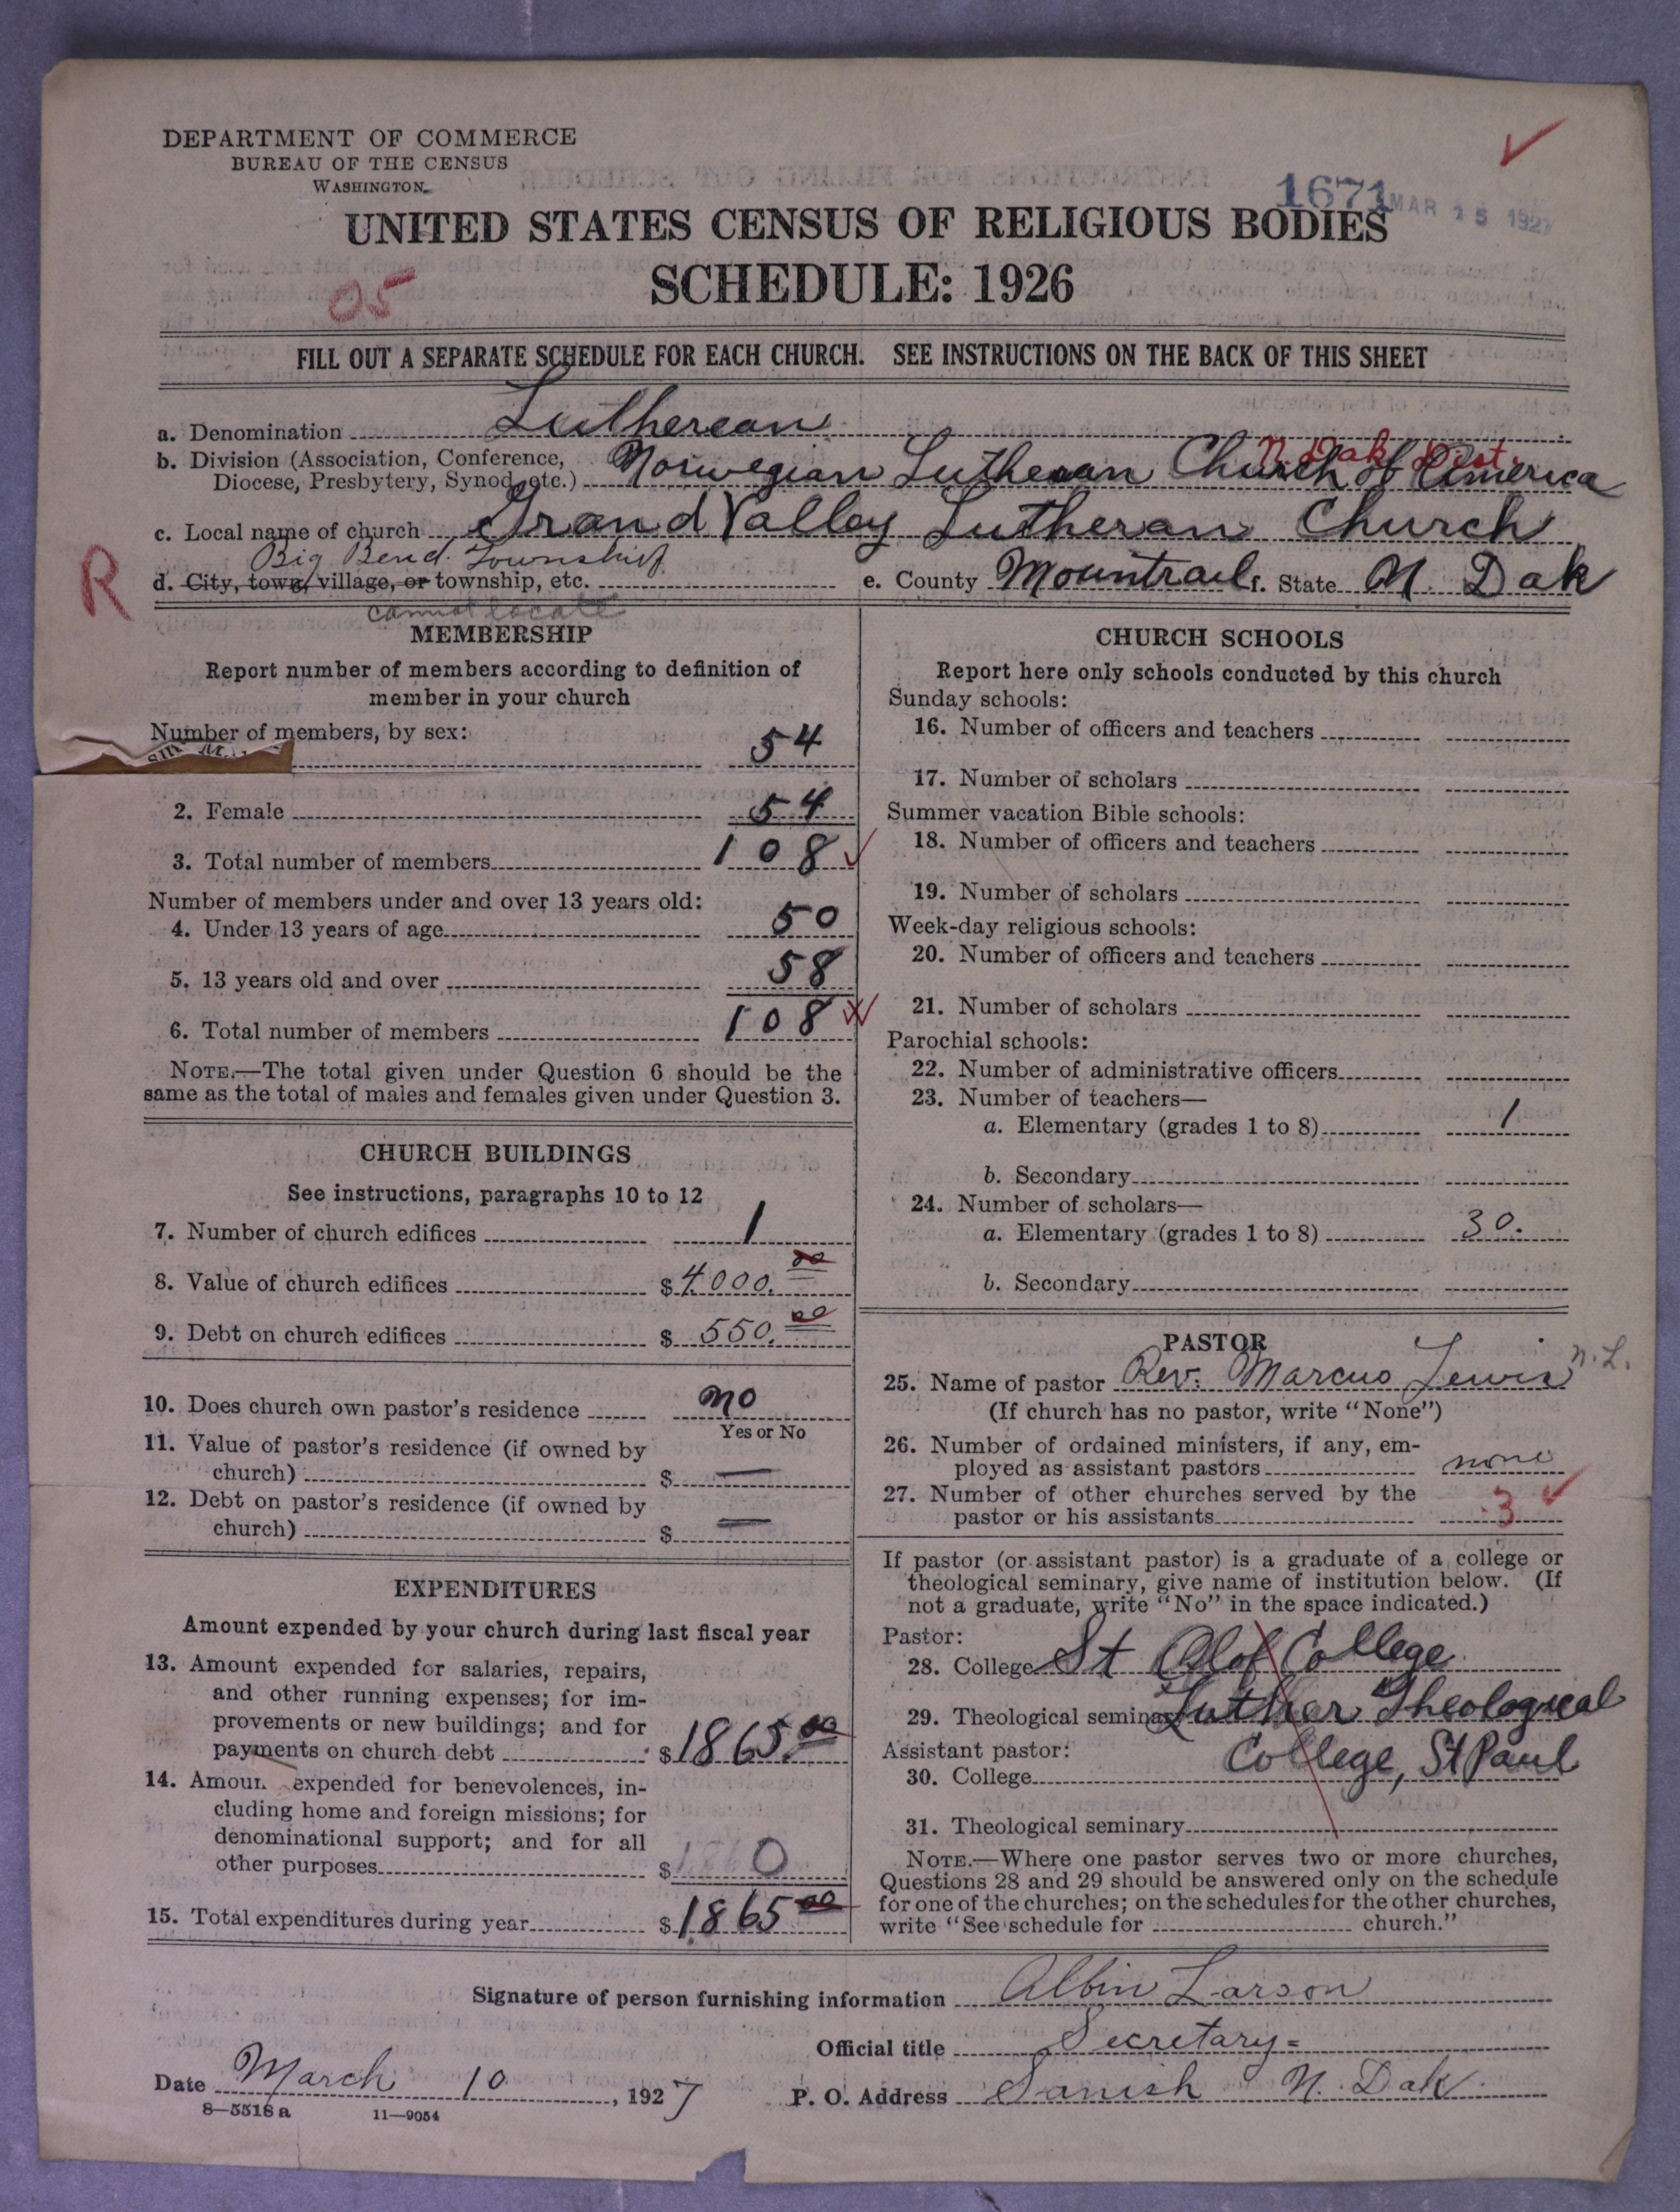 DEPARTMENT OF COMMERCE
BUREAU OF THE CENSUS
WASHINGTON
1671 MAR 15 1927
UNITED STATES CENSUS OF RELIGIOUS BODIES
SCHEDULE: 1926
05
FILL OUT A SEPARATE SCHEDULE FOR EACH CHURCH. SEE INSTRUCTIONS ON THE BACK OF THIS SHEET
a. Denomination Lutherean
N. Dak. Dist.
b. Division (Association, Conference, Norwegian Lutheran Church of America
Diocese, Presbytery, Synod, etc.)
c. Local name of church Grand Valley Lutheran Church
Big Bend Township
R
d. City, town, village, or township, etc. e. County Mountrail f. State N. Dak
cannot locate
MEMBERSHIP
Report number of members according to definition of
member in your church
Number of members, by sex:
54
2. Female 54
3. Total number of members 108
Number of members under and over 13 years old:
4. Under 13 years of age 50
5. 13 years old and over 58
6. Total number of members 108
NOTE.—The total given under Question 6 should be the
same as the total of males and females given under Question 3.
CHURCH BUILDINGS
See instructions, paragraphs 10 to 12
7. Number of church edifices 1
8. Value of church edifices $4000.00
9. Debt on church edifices $550.00
10. Does church own pastor's residence no
Yes or No
11. Value of pastor's residence (if owned by
church) $ —
12. Debt on pastor's residence (if owned by
church) $ —
EXPENDITURES
Amount expended by your church during last fiscal year
13. Amount expended for salaries, repairs,
and other running expenses; for im-
provements or new buildings; and for
payments on church debt $1865.00
14. Amoun expended for benevolences, in-
cluding home and foreign missions; for
denominational support; and for all
other purposes $ 0
15. Total expenditures during year $1865 00
CHURCH SCHOOLS
Report here only schools conducted by this church
Sunday schools:
16. Number of officers and teachers
17. Number of scholars
Summer vacation Bible schools:
18. Number of officers and teachers
19. Number of scholars
Week-day religious schools:
20. Number of officers and teachers
21. Number of scholars
Parochial schools:
22. Number of administrative officers
23. Number of teachers—
a. Elementary (grades 1 to 8) 1
b. Secondary
24. Number of scholars—
a. Elementary (grades 1 to 8) 30.
b. Secondary
PASTOR
25. Name of pastor Rev. Marcus Lewis n.L.
(If church has no pastor, write "None")
26. Number of ordained ministers, if any, em-
ployed as assistant pastors none
27. Number of other churches served by the
pastor or his assistants 3
If pastor (or assistant pastor) is a graduate of a college or
theological seminary, give name of institution below. (If
not a graduate, write "No" in the space indicated.)
Pastor:
28. College St Olof College
29. Theological seminary Luther Theological
Assistant pastor: College, St Paul
30. College
31. Theological seminary
NOTE.—Where one pastor serves two or more churches,
Questions 28 and 29 should be answered only on the schedule
for one of the churches; on the schedules for the other churches,
write "See schedule for church."
Signature of person furnishing information Albin Larson
Official title Secretary
Date March 10, 1927 P. O. Address Sanish N. Dak.
8—5518 a 11—9054